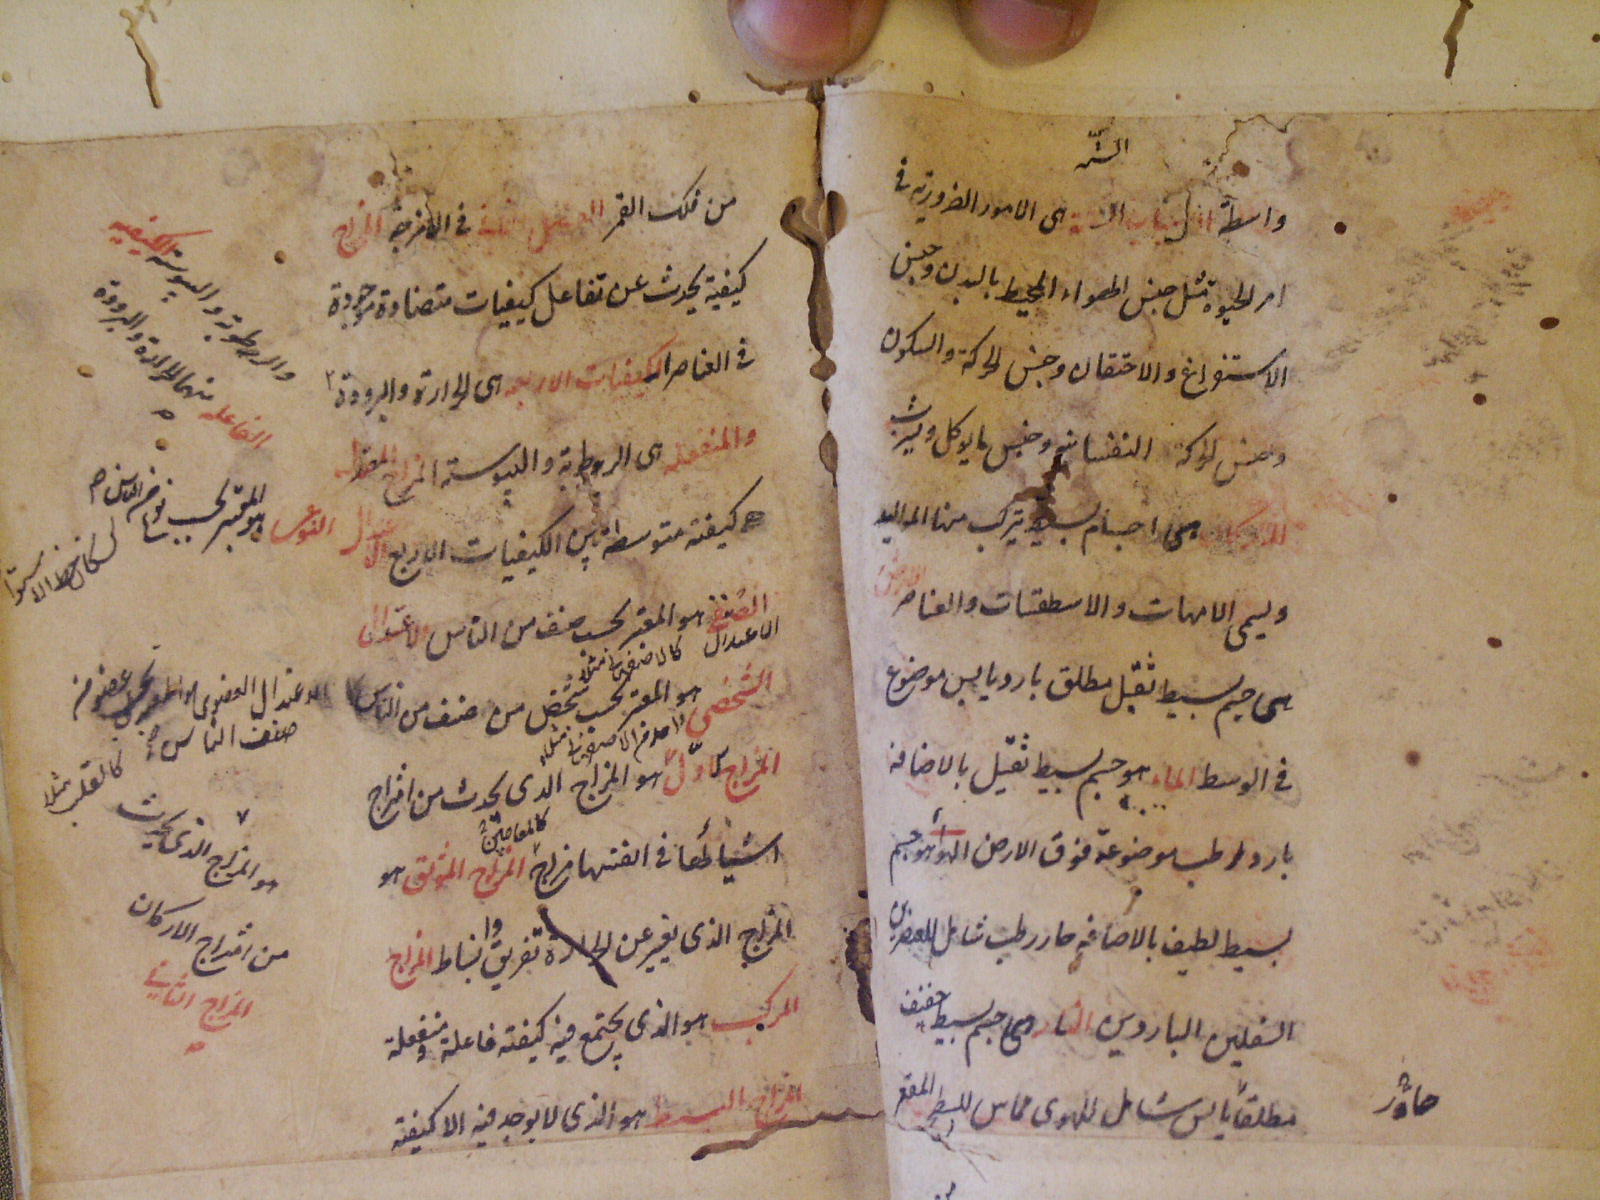 الستّه
واسطة الاسباب الستة هى الامور الضرورية فى
امر الحيوة مثل جنس الهواء المحيط بالبدن وجنس
الاستفراغ والاحتقان وجنس الحركة والسكون
وجنس الحركة النفسانية وجنس ما يوكل ويشرب
الاركان هى اجسام بسيطة يتركب منها المواليد
ويسمى الامهات والاسطقسات والعناصر الارض
هى جسم بسيط ثقيل مطلق بارد يابس موضوع
فى الوسط الماء هو جسم بسيط ثقيل بالاضافه
بارد رطب موضوعة فوق الارض الهواء هو جسم
بسيط لطيف بالاضافه حار رطب شامل للعنصرين
السفلين الباردين النار هى جسم بسيط خفيف
مطلقا يابس شامل للهوى مماس للسطح المقعر
حار
من فلك القمر الفصل الثانى فى الامزجة المزاج
كيفية يحدث عن تفاعل كيفيات متضادة موجودة
فى العناصر الكيفيات الاربعه هى الحرارة والبرودة
والمنفعله هى الرطوبة واليبوسة المزاج المعتدل
كيفية متوسطة بين الكيفيات الاربع الاعتدال
الصنفى هو المعتبر بحسب صنف من الناس الاعتدال
كالاصفهانى مثلا
الشخصى هو المعتبر بحسب شخص من صنف من الناس
المزاج الاول هو المزاج الذى يحدث من امتزاج
اشياء لها فى انفسها مزاج المزاج الموثق هو
كالمعاجين
المزاج الذى يعسر عن الحرارة تفريق انبساط المزاج
المركب هو الذى يجتمع فيه كيفية فاعلة ومنفعلة
المزاج البسيط هو الذى لا يوجد فيه الا كيفية
والرطوبة واليبوسة الكيفيه
الفاعله منهما الحرارة والبرودة
النوعى هو المعتبر بحسب نوع من الناس
كسكان خط الاستوا
الاعتدال العضوى هو المعتبر بحسب عضو من
صنف الناس
كالقلب مثلا
هو المزاج الذى يحدث
من امتزاج الاركان
المزاج الثانى